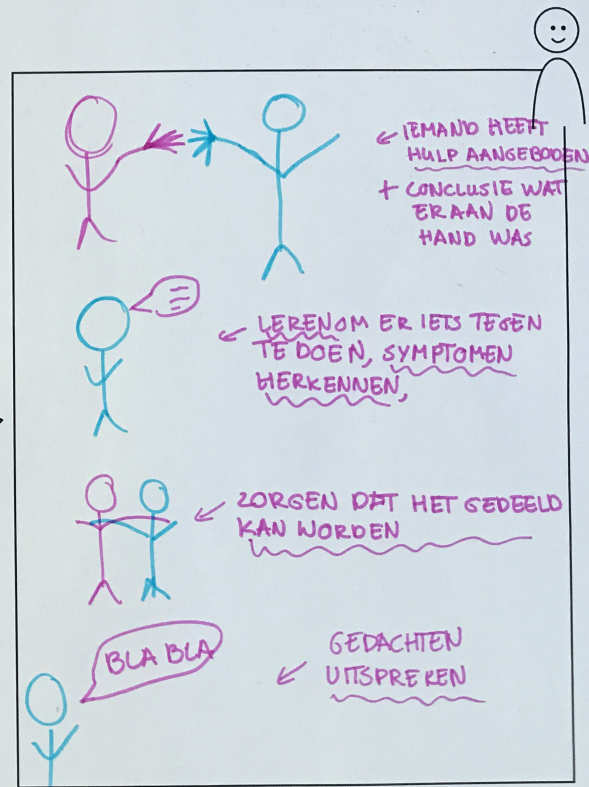 IEMAND HEEFT
HULP AANGEBODEN
+ CONCLUSIE WAT
ER AAN DE
HAND WAS
LEREN OM ER IETS TEGEN
TE DOEN, SYMPTOMEN
HERKENNEN,
ZORGEN DAT HET GEDEELD
KAN WORDEN
BLA BLA
GEDACHTEN
UITSPREKEN